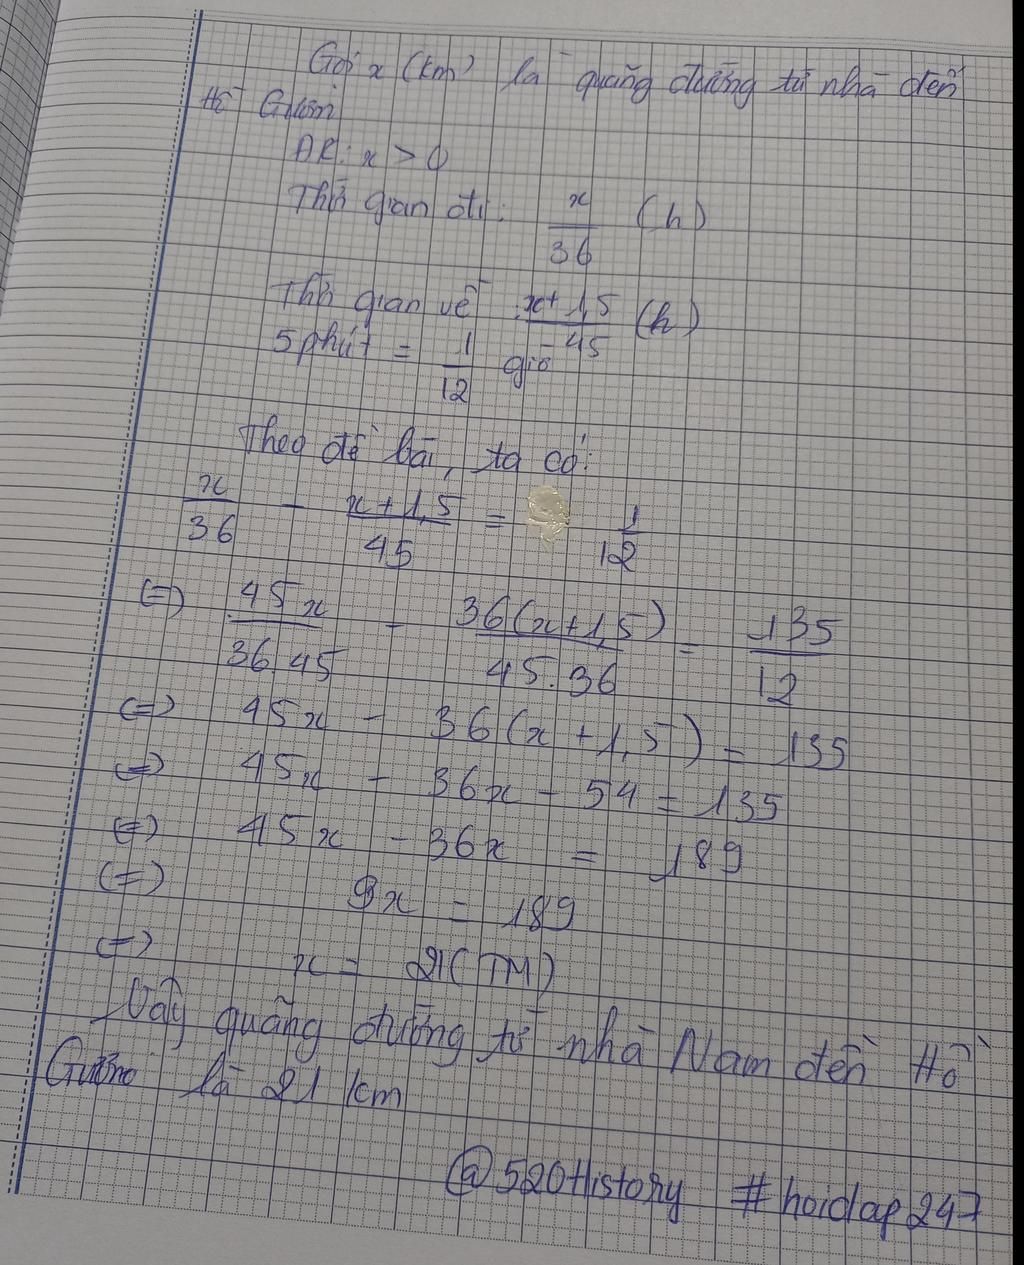 Gọi x (km) là quãng đường từ nhà đến
Hồ Gươm
ĐK: x > 0
Thời gian đi: x/36 (h)
Thời gian về: x+1,5/45 (h)
5 phút = 1/12 giờ
Theo đề bài, ta có:
x/36 - x+1,5/45 = 1/12
(=) 45x/36.45 - 36(x+1,5)/45.36 = 135/12
(=) 45x - 36(x+1,5) = 135
(=) 45x - 36x - 54 = 135
(=) 45x - 36x = 189
(=) 9x = 189
(=) x = 21 (TM)
Vậy quãng đường từ nhà Nam đến Hồ
Gươm là 21 km
@520History #hoidap247